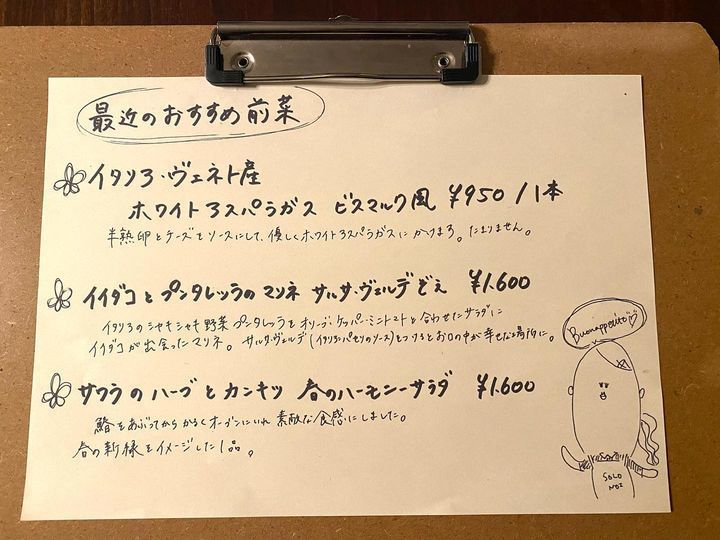 最近のおすすめ前菜
イタリア・ヴェネト産
ホワイトアスパラガス ビスマルク風 ¥950 / 1本
半熟卵とチーズをソースにして、優しくホワイトアスパラガスにかけます。たまりません。
イイダコとプンタレッラのマリネ サルサ・ヴェルデぞえ ¥1.600
イタリアのシャキシャキ野菜 プンタレッラをオリーブ・ケッパー・ミニトマトと合わせたサラダに
イイダコが出会ったマリネ。サルサ・ヴェルデ(イタリアンパセリのソース)をつけるとお口の中が幸せな場所に。
サワラのハーブとカンキツ 春のハーモニーサラダ ¥1.600
鰆をあぶってからかるくオーブンにいれ素敵な食感にしました。
春の新緑をイメージした1品。
Buonappetito
SOLO
NOI